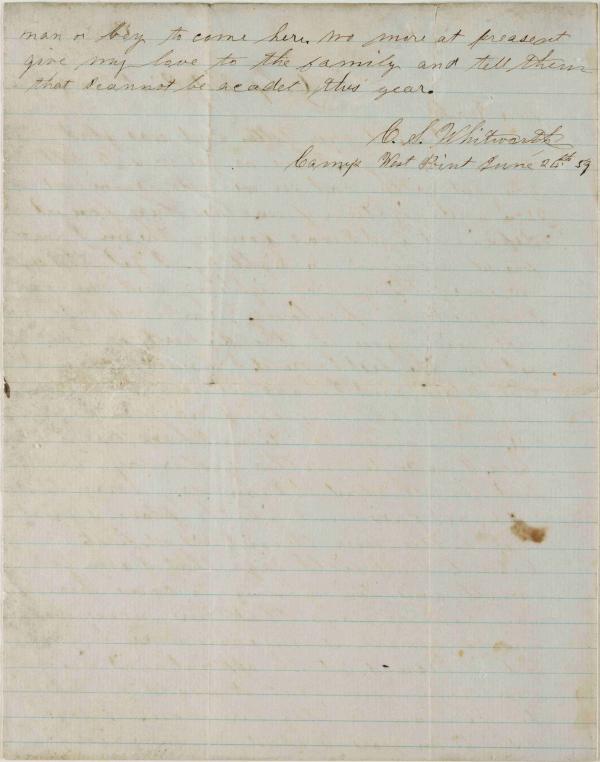 man or boy to come here. no more at preasent
give my love to the family and tell them
that I cannot be a cadet this year.
C. S. Whitworth
Camp West Point June 26th 59